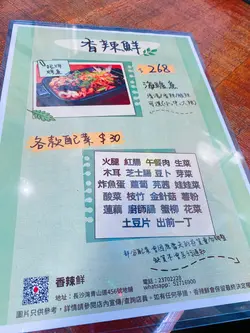 香辣鮮
$268
海鱸魚
各款配菜 $30
火腿 紅腸 午餐肉 生菜
木耳 芝士腸 豆卜 芽菜
炸魚蛋 蘿蔔 芫茜 娃娃菜
酸菜 枝竹 金針菇 薯粉
蓮藕 廚師腸 蟹柳 花菜
土豆片 出前一丁
香辣鮮
電話: 23702228
whatsapp: 51716900
地址: 長沙灣青山道456號地舖
圖片只供參考。詳情請參閱店內宣傳/查詢店員。如有任何爭議，香辣鮮會保留最終決定權